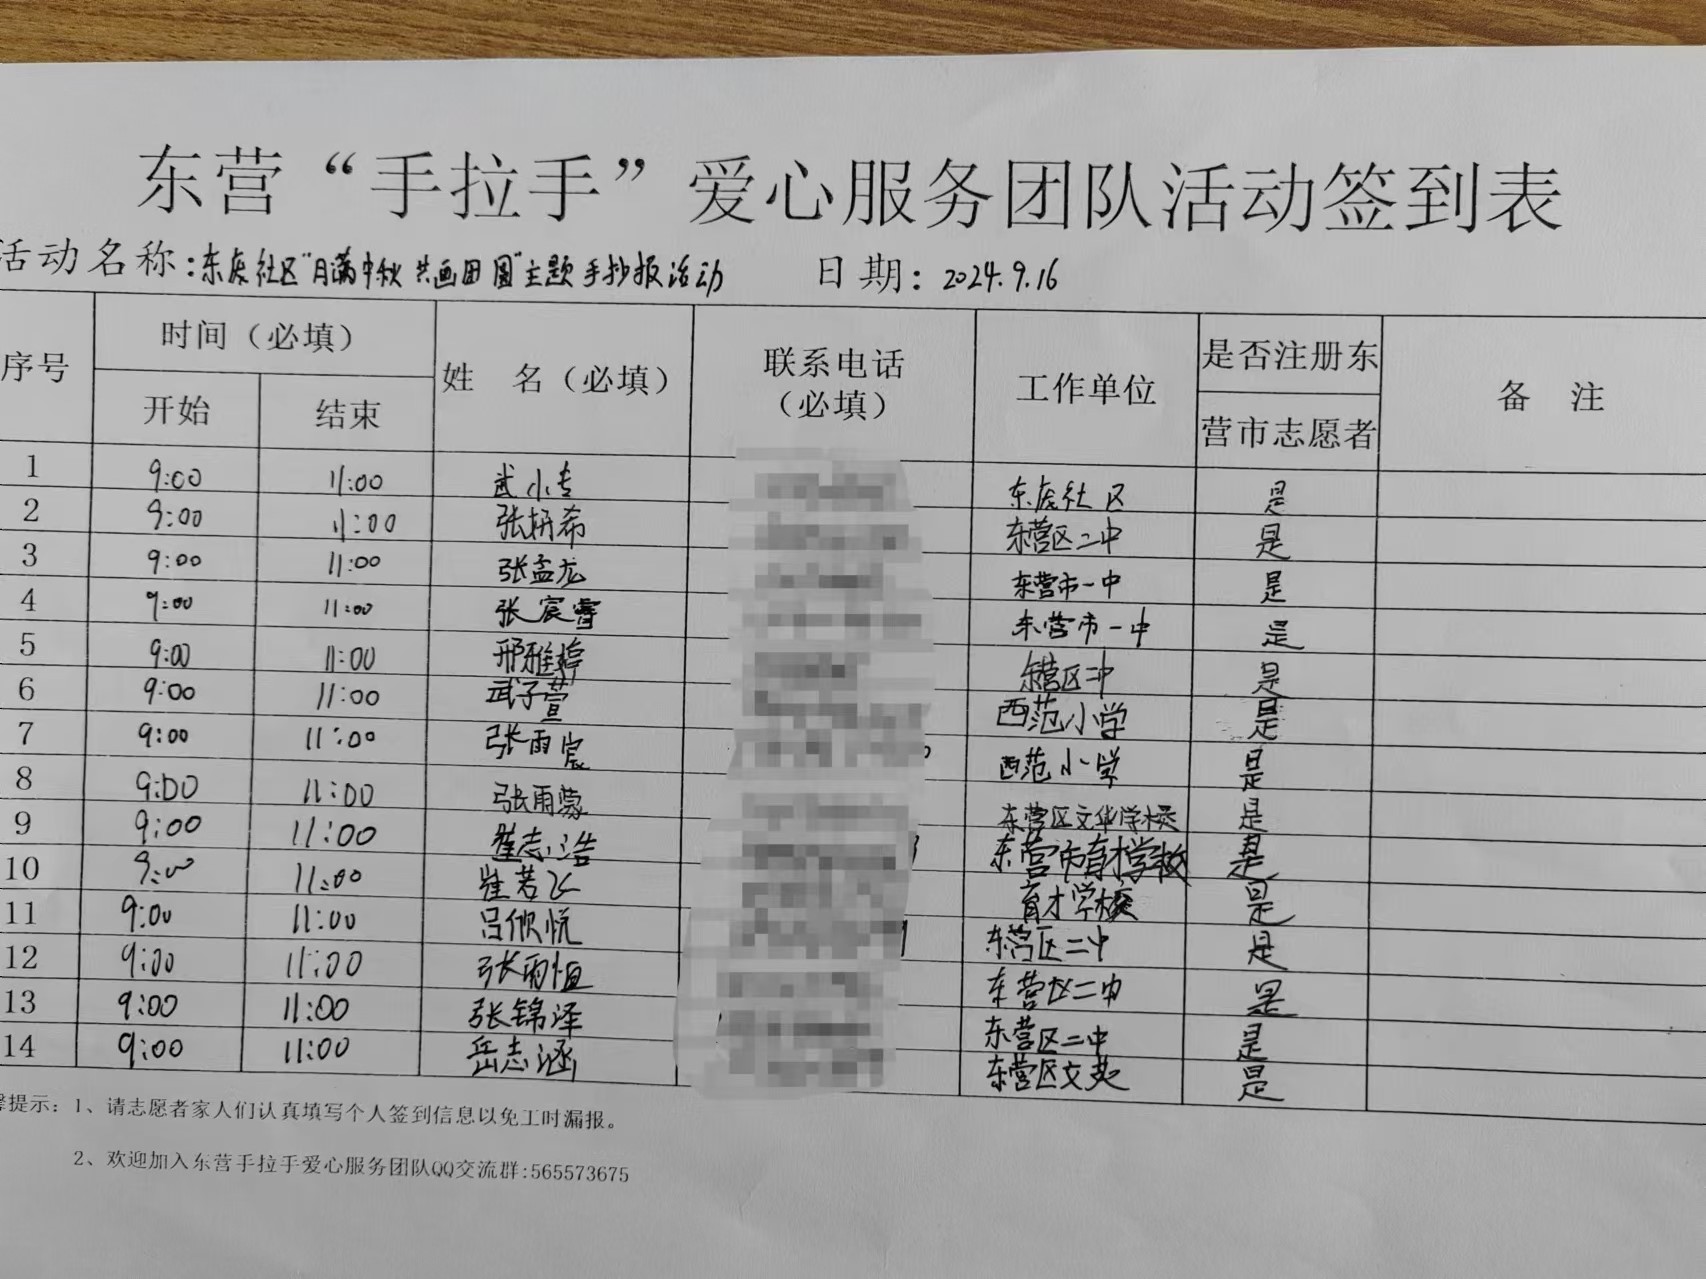 东营“手拉手”爱心服务团队活动签到表
活动名称:东虎社区“月满中秋 共画团圆”主题手抄报活动 日期: 2024.9.16
序号 时间（必填） 姓 名（必填） 联系电话（必填） 工作单位 是否注册东营市志愿者 备 注
开始 结束
1 9:00 11:00 武小专 东虎社区 是
2 9:00 11:00 张栩希 东营区二中 是
3 9:00 11:00 张孟龙 东营市一中 是
4 9:00 11:00 张宸睿 东营市一中 是
5 9:00 11:00 邢雅婷 东营区二中 是
6 9:00 11:00 武子萱 西范小学 是
7 9:00 11:00 张雨宸 西范小学 是
8 9:00 11:00 张雨蒙 东营区文华学校 是
9 9:00 11:00 崔志浩 东营市育才学校 是
10 9:00 11:00 崔若飞 育才学校 是
11 9:00 11:00 吕欣悦 东营区二中 是
12 9:00 11:00 张雨恒 东营区二中 是
13 9:00 11:00 张锦泽 东营区二中 是
14 9:00 11:00 岳志涵 东营区文苑 是
提示：1、请志愿者家人们认真填写个人签到信息以免工时漏报。
2、欢迎加入东营手拉手爱心服务团队QQ交流群:565573675